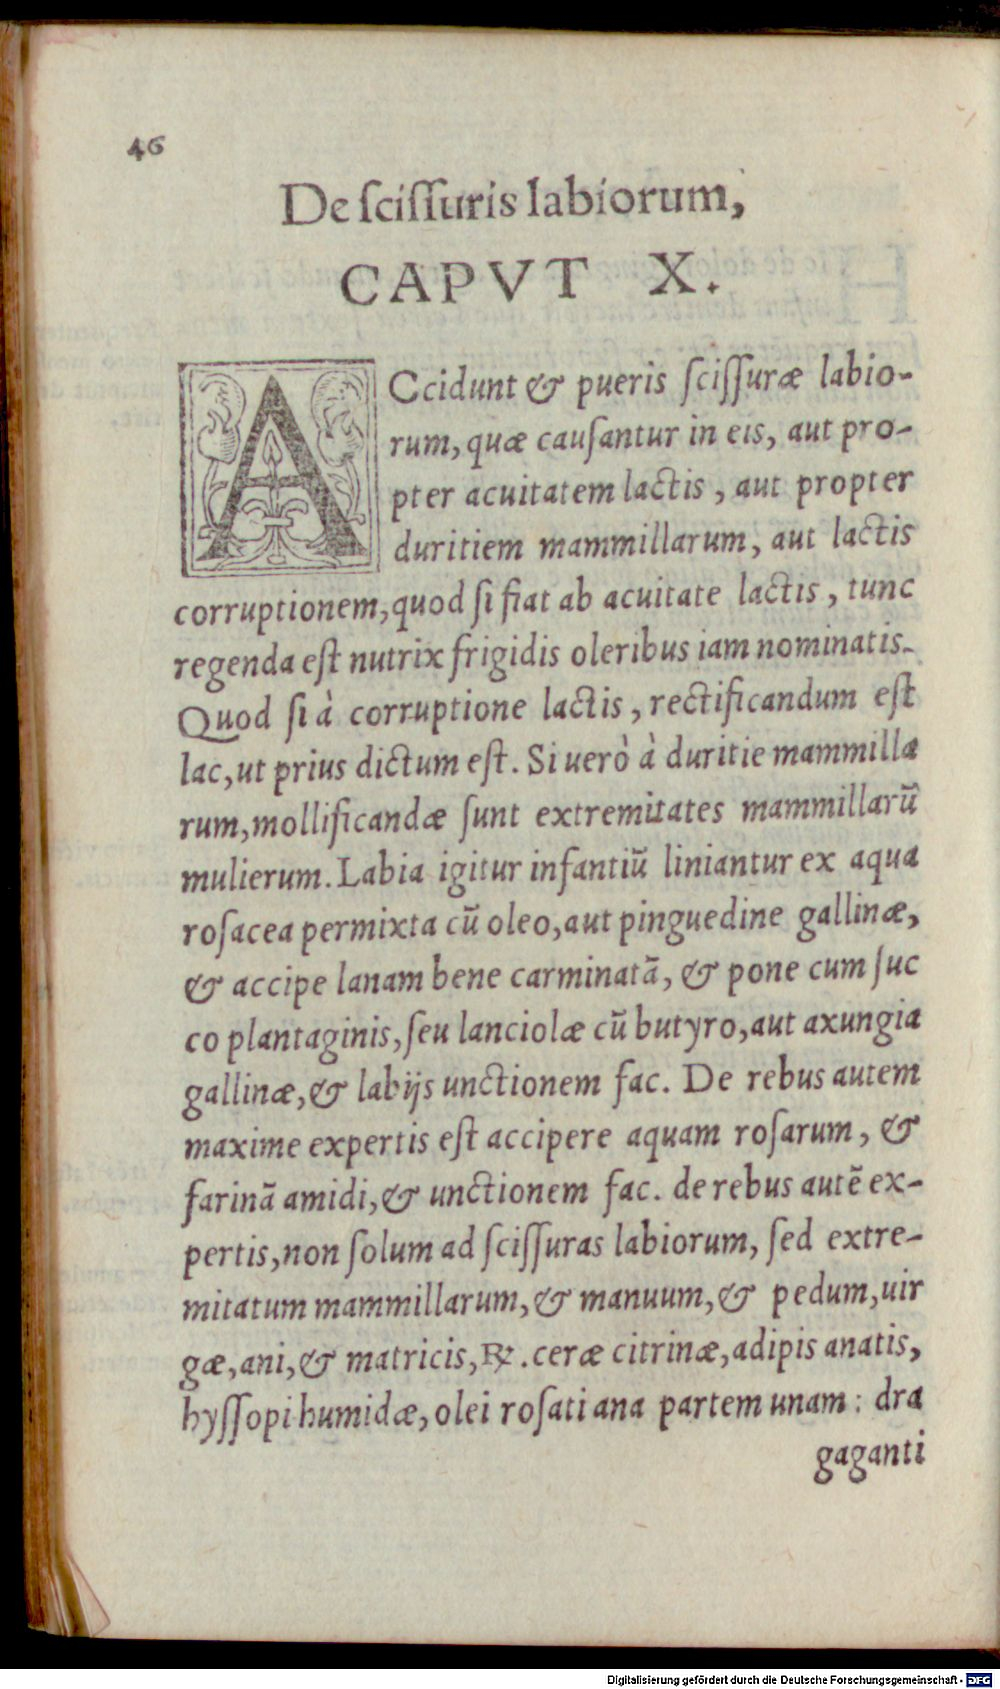 46
De ſciſſuris labiorum,
CAPVT X.
ACcidunt & pueris ſciſſuræ labio-
rum, quæ cauſantur in eis, aut pro-
pter acuitatem lactis, aut propter
duritiem mammillarum, aut lactis
corruptionem, quod ſi fiat ab acuitate lactis, tunc
regenda eſt nutrix frigidis oleribus iam nominatis.
Quod ſi à corruptione lactis, rectificandum eſt
lac, ut prius dictum eſt. Si uerò à duritie mammilla
rum, mollificandæ ſunt extremitates mammillarũ
mulierum. Labia igitur infantiũ liniantur ex aqua
roſacea permixta cũ oleo, aut pinguedine gallinæ,
& accipe lanam bene carminatã, & pone cum ſuc
co plantaginis, ſeu lanciolæ cũ butyro, aut axungia
gallinæ, & labijs unctionem fac. De rebus autem
maxime expertis eſt accipere aquam roſarum, &
farinã amidi, & unctionem fac. de rebus autẽ ex-
pertis, non ſolum ad ſciſſuras labiorum, ſed extre-
mitatum mammillarum, & manuum, & pedum, uir
gæ, ani, & matricis, ℞. ceræ citrinæ, adipis anatis,
hyſſopi humidæ, olei roſati ana partem unam: dra
gaganti
Digitalisierung gefördert durch die Deutsche Forschungsgemeinschaft - DFG